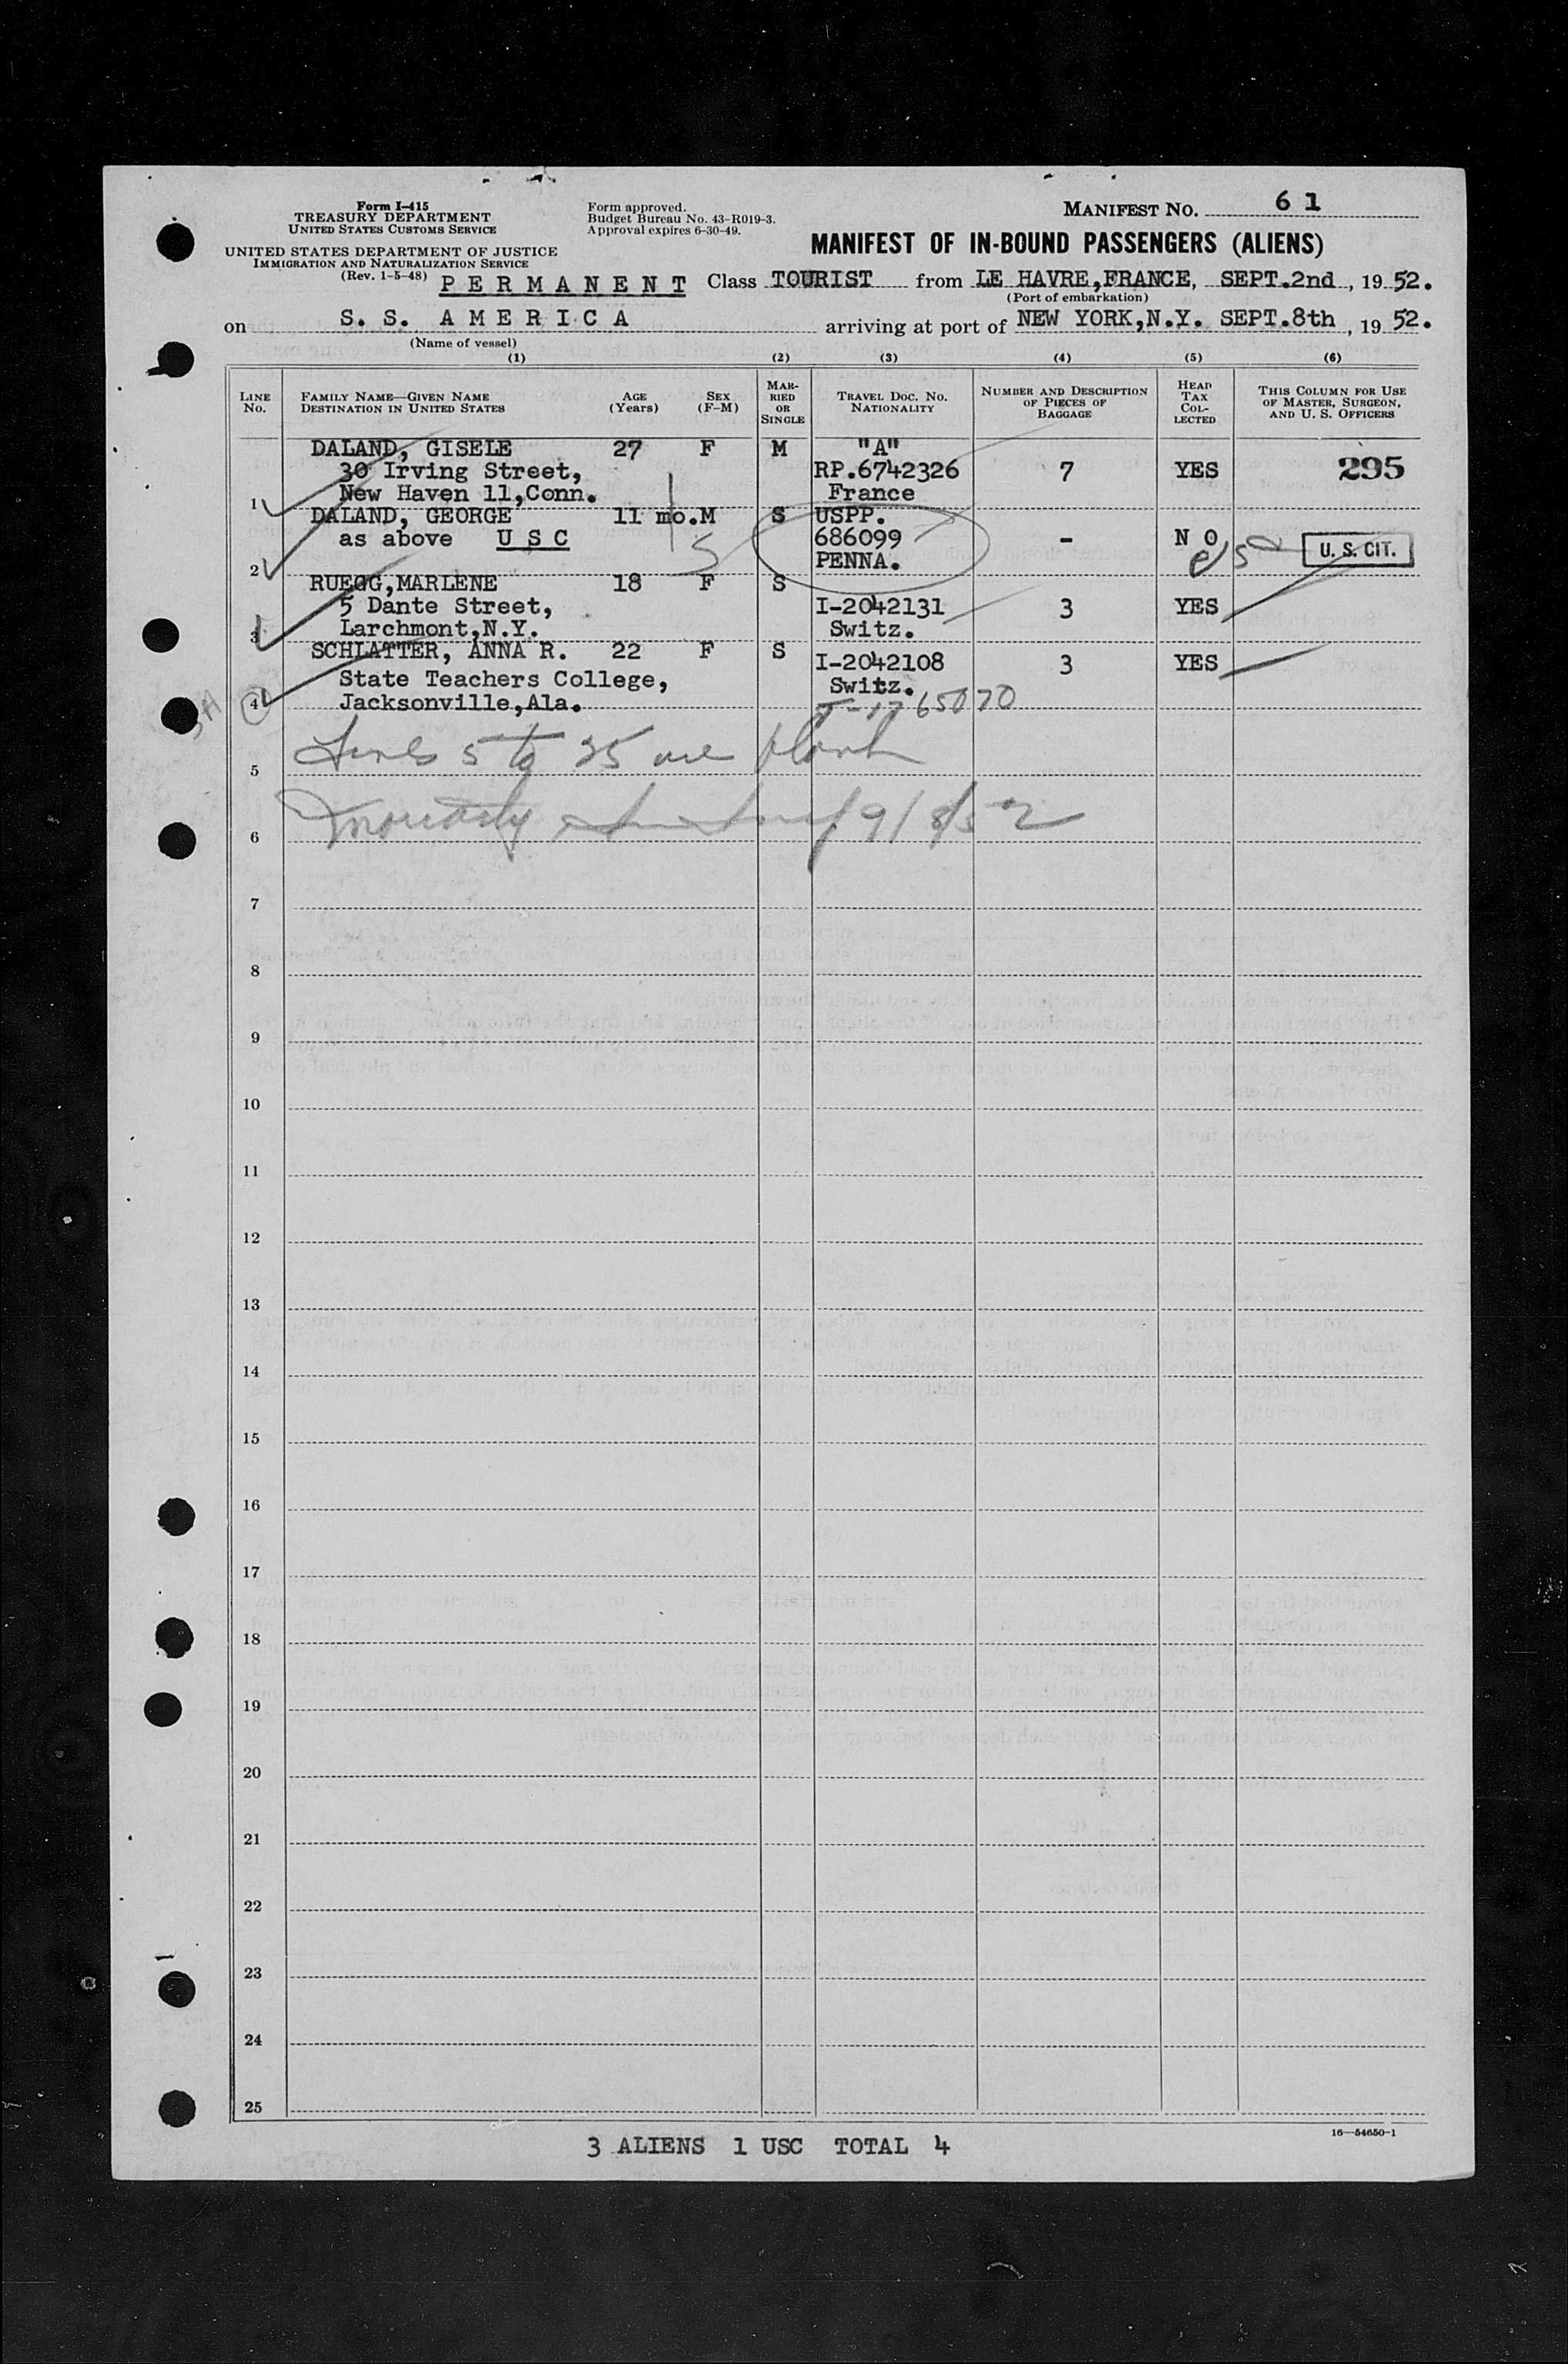 Form I-415
TREASURY DEPARTMENT
UNITED STATES CUSTOMS SERVICE
UNITED STATES DEPARTMENT OF JUSTICE
IMMIGRATION AND NATURALIZATION SERVICE
(Rev. 1-5-48)
Form approved.
Budget Bureau No. 43-R019-3.
Approval expires 6-30-49.
MANIFEST NO. 6 1
MANIFEST OF IN-BOUND PASSENGERS (ALIENS)
P E R M A N E N T Class TOURIST from LE HAVRE,FRANCE, SEPT.2nd, 19 52.
(Port of embarkation)
on S. S. A M E R I C A arriving at port of NEW YORK,N.Y. SEPT.8th, 19 52.
(Name of vessel)
(1) (2) (3) (4) (5) (6)
LINE No.
FAMILY NAME—GIVEN NAME
DESTINATION IN UNITED STATES
AGE (Years)
SEX (F-M)
MARRIED OR SINGLE
TRAVEL DOC. NO. NATIONALITY
NUMBER AND DESCRIPTION OF PIECES OF BAGGAGE
HEAD TAX COLLECTED
THIS COLUMN FOR USE OF MASTER, SURGEON, AND U. S. OFFICERS
DALAND, GISELE 27 F M "A"
30 Irving Street, RP.6742326 7 YES 295
1 New Haven 11,Conn. France
DALAND, GEORGE 11 mo. M S USPP.
as above U S C 686099 - N O U. S. CIT.
2 PENNA.
RUEGG,MARLENE 18 F S
5 Dante Street, I-2042131 3 YES
3 Larchmont,N.Y. Switz.
SCHLATTER, ANNA R. 22 F S I-2042108 3 YES
State Teachers College, Switz.
4 Jacksonville,Ala. T-1765070
5 Lines 5 to 25 are blank
6 Moriarty 9/8/52
7
8
9
10
11
12
13
14
15
16
17
18
19
20
21
22
23
24
25
16—54650-1
3 ALIENS 1 USC TOTAL 4